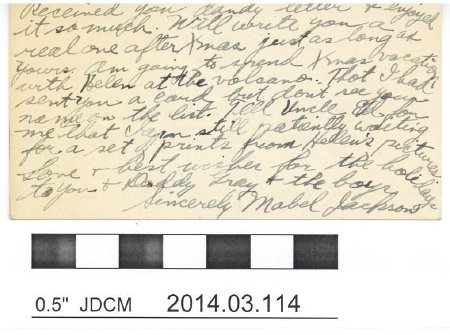 Received you dandy letter & enjoyed
it so much. Will write you a
real one after Xmas just as long as
yours. Am going to spend Xmas vacation
with Helen at the volcano. Thot I had
sent you a card but don't see your
name on the list. Tell Uncle for
me that I am still patiently waiting
for a set of prints from Helen's pictures
Love & best wishes for the holidays
to you & Daddy Grey & the boys
Sincerely Mabel Jackson
0.5" JDCM 2014.03.114